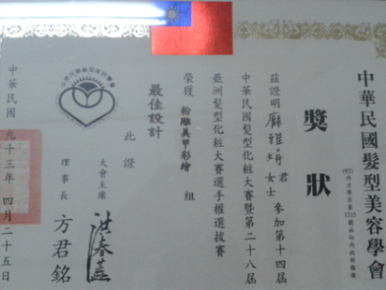 中華民國髮型美容學會
獎狀
茲證明 君 女士 參加第十四屆
中華民國髮型化粧大賽暨第二十八屆
亞洲髮型化粧大賽選手權選拔賽
榮獲 粉雕美甲彩繪 組
最佳設計
此證
大會主席
理事長 方君銘
中華民國 九十三年 四月 二十五日